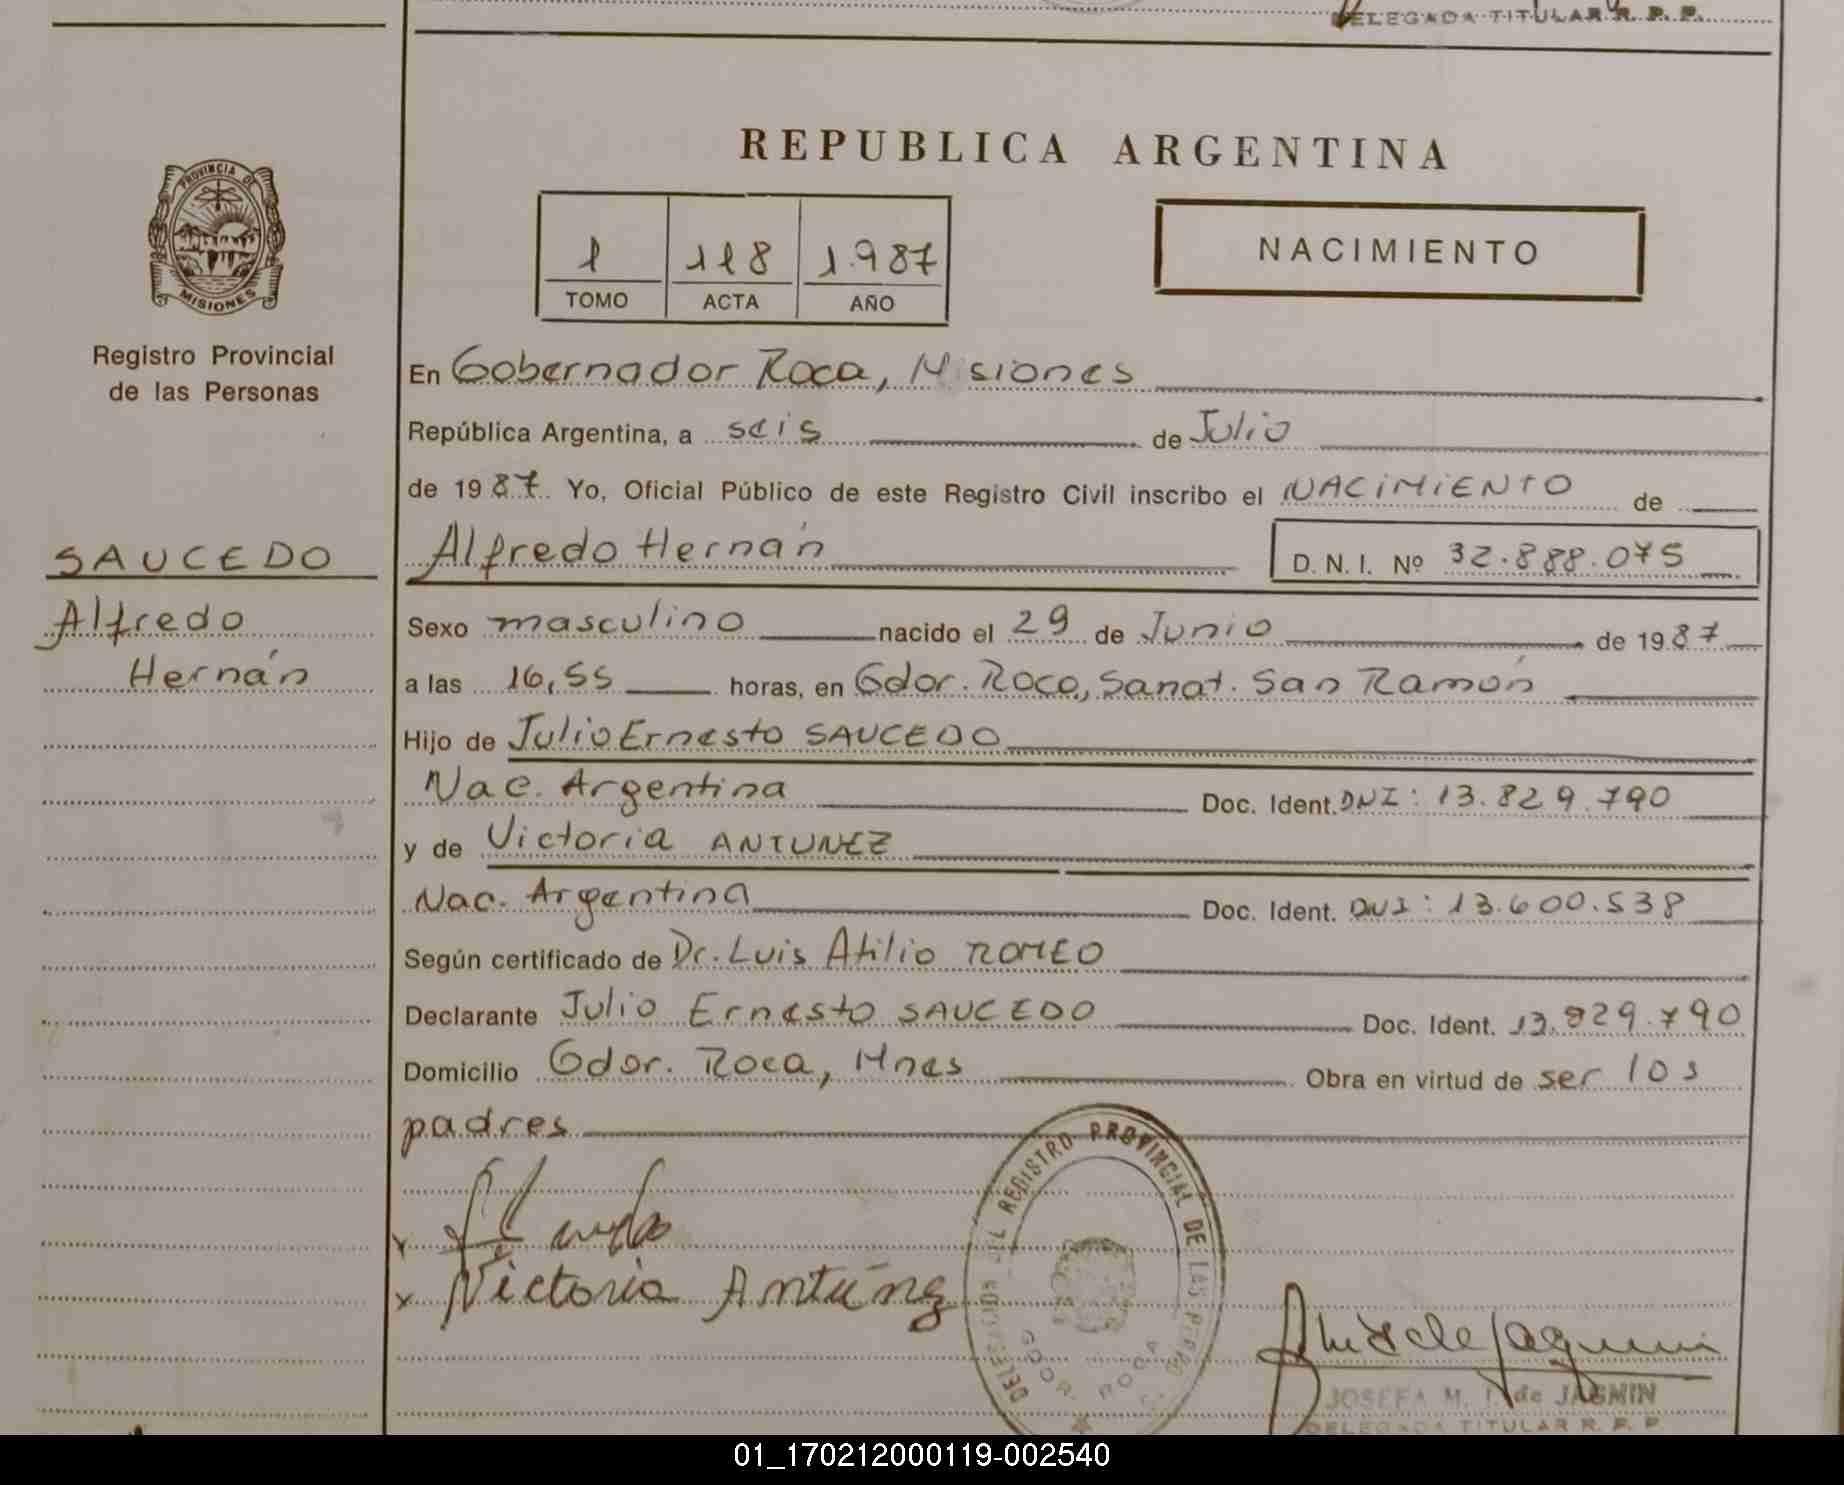 DELEGADA TITULAR R. P. P.
REPUBLICA ARGENTINA
PROVINCIA DE
MISIONES
1 118 1.987
TOMO ACTA AÑO
NACIMIENTO
Registro Provincial
de las Personas
En Gobernador Roca, Misiones
República Argentina, a seis de Julio
de 1987. Yo, Oficial Público de este Registro Civil inscribo el NACIMIENTO de
SAUCEDO
Alfredo Hernán
D. N. I. Nº 32.888.075
Alfredo
Hernán
Sexo masculino nacido el 29 de Junio de 1987
a las 16,55 horas, en Gdor. Roca, Sanat. San Ramón
Hijo de Julio Ernesto SAUCEDO
Nac. Argentina Doc. Ident. DNI: 13.829.790
y de Victoria ANTUNEZ
Nac. Argentina Doc. Ident. DNI: 13.600.538
Según certificado de Dr. Luis Atilio ROMEO
Declarante Julio Ernesto SAUCEDO Doc. Ident. 13.829.790
Domicilio Gdor. Roca, Mnes Obra en virtud de ser los
padres
x
x Victoria Antúnez
REGISTRO PROVINCIAL DE LAS
GDOR. ROCA
JOSEFA M. I. de JASMIN
DELEGADA TITULAR R. P. P.
01_170212000119-002540